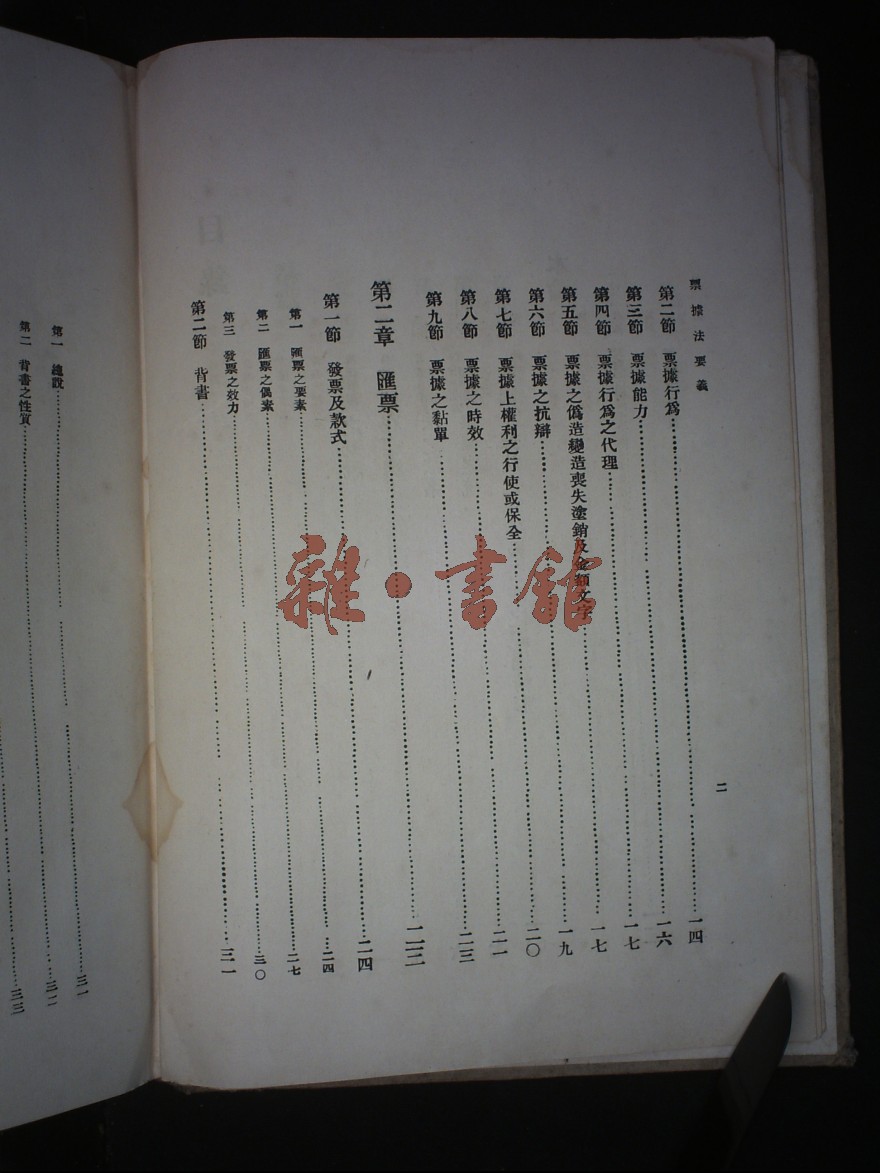 票據法要義
二
第二節 票據行爲……一四
第三節 票據能力……一六
第四節 票據行爲之代理……一七
第五節 票據之僞造變造喪失塗銷及金額文字……一七
第六節 票據之抗辯……一九
第七節 票據上權利之行使或保全……二〇
第八節 票據之時效……二一
第九節 票據之黏單……二三
第二章 匯票……
第一節 發票及款式……二四
第一 匯票之要素……二四
第二 匯票之偶素……二七
第三 發票之效力……三〇
第二節 背書……三一
第一 總說……三一
第二 背書之性質……三二
……三三
雜·書館